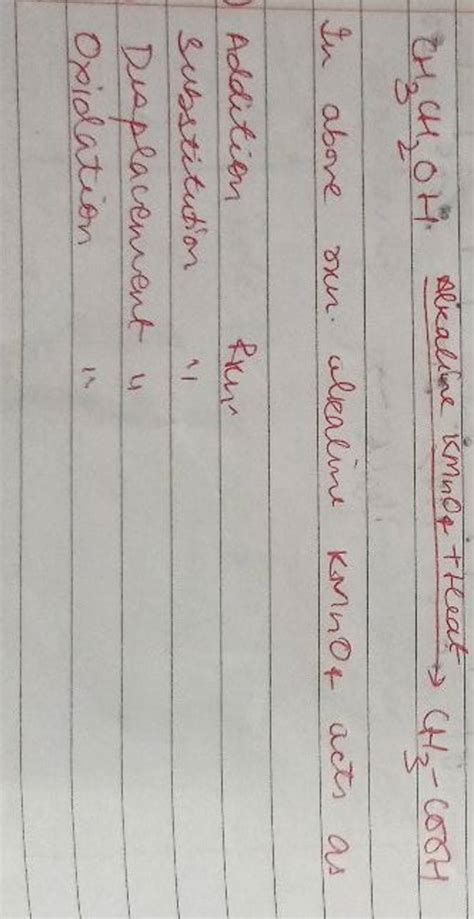 CH3CH2OH Alkaline KMnO4 + Heat → CH3-COOH
In above rxn. alkaline KMnO4 acts as
) Addition Rxn.
Substitution "
Displacement "
Oxidation "